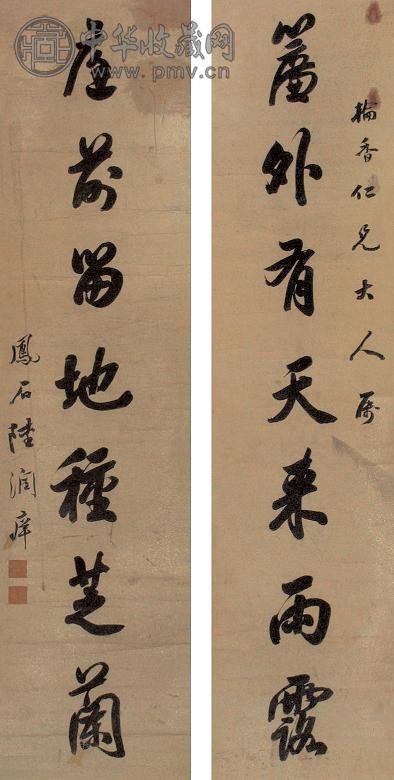 中华收藏网
www.pmv.cn
掄香仁兄大人屬
簾外有天来雨露
前留地種芝蘭
鳳石陸潤庠